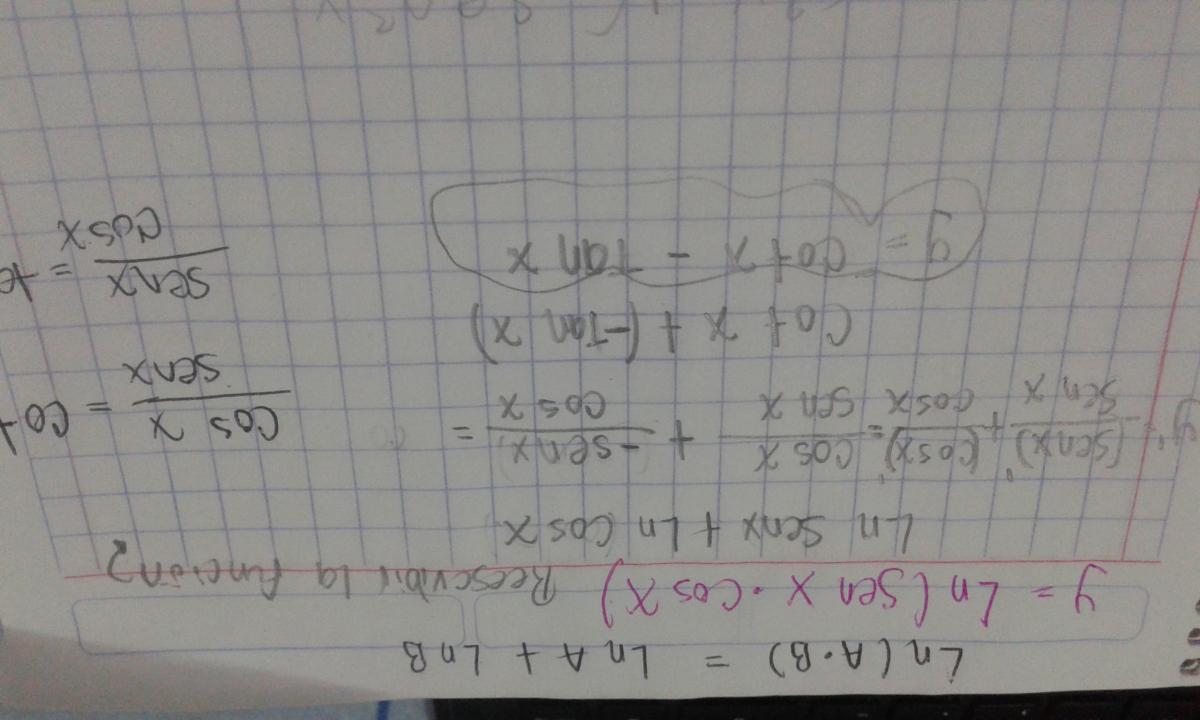 Ln(A·B) = Ln A + Ln B
y = Ln(Sen x · Cos x) Reescribir la función?
Ln Senx + Ln Cos x
y' = (senx)'/sen x + (cosx)'/cosx = cos x/sen x + -senx/cos x =
cos x/senx = cot
Cot x + (-Tan x)
senx/cosx =
y = cot x - Tan x